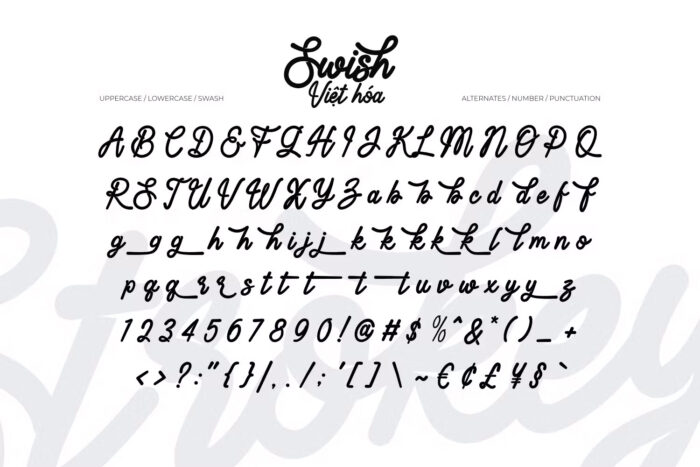 Swish
Việt hóa
UPPERCASE / LOWERCASE / SWASH
ALTERNATES / NUMBER / PUNCTUATION
A B C D E F G H I J K L M N O P Q
R S T U V W X Y Z a b b b c d e f f
g g g h h h i j j k k k k k l l m n o
p q q q r r s t t t t t u v w x y y z
1 2 3 4 5 6 7 8 9 0 ! @ # $ % ^ & * ( ) _ +
< > ? : " { } | , . / ; ' [ ] \ ~ € ¢ £ ¥ § `
Strokey